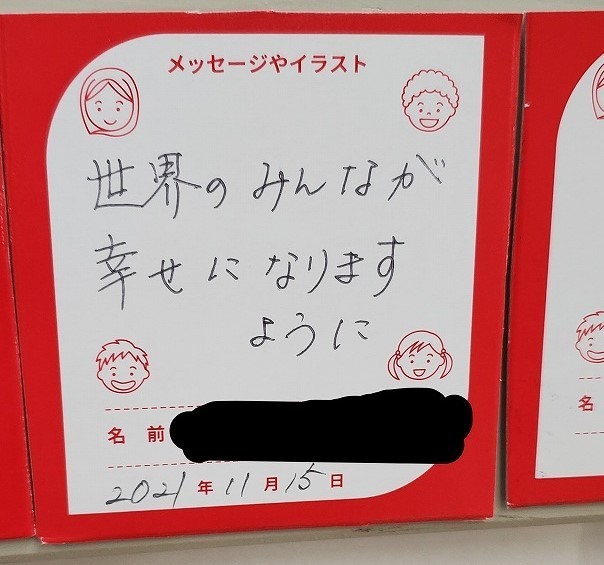 メッセージやイラスト
世界のみんなが
幸せになります
ように
名前
2021年11月15日
名